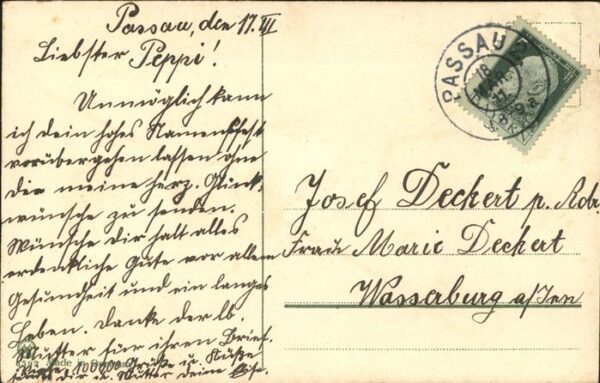 Passau, den 17. III
Liebster Peppi!
Unmöglich kann
ich dein hohes Namensfest
vorübergehen lassen ohne
dir meine herz. Glück-
wünsche zu senden.
Wünsche dir halt alles
erdenkliche Gute vor allem
Gesundheit und ein langes
Leben. Danke der lb.
Mutter für ihren Brief.
100000 Grüße u. Küße
dir u. Mutter deine
PASSAU 2
18
Josef Deckert p. Adr.
Frau Marie Deckert
Wasserburg a/Inn
Made in